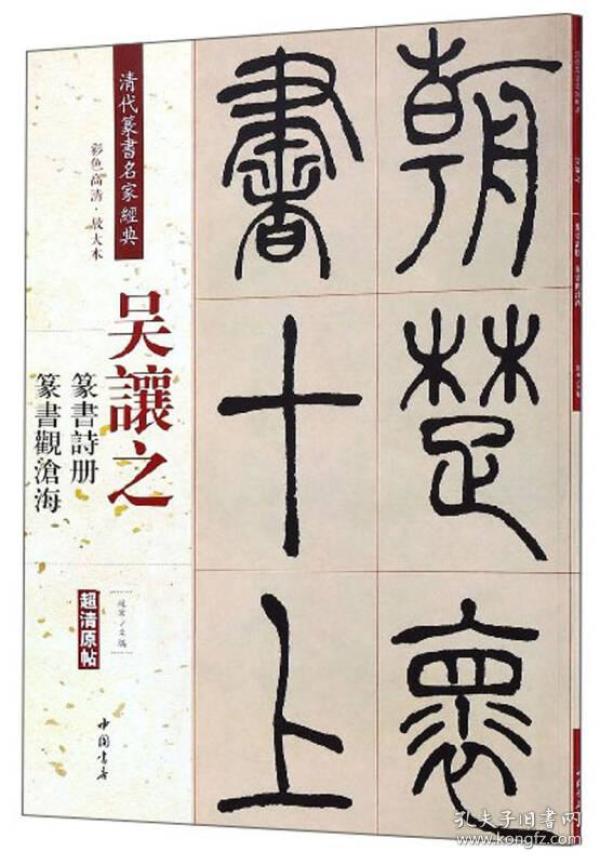 清代篆書名家經典
彩色高清·放大本
吴讓之
篆書詩册
篆書觀滄海
超清原帖
中国書店
朝楚褱
書十上
孔夫子旧書网
kongfz.com